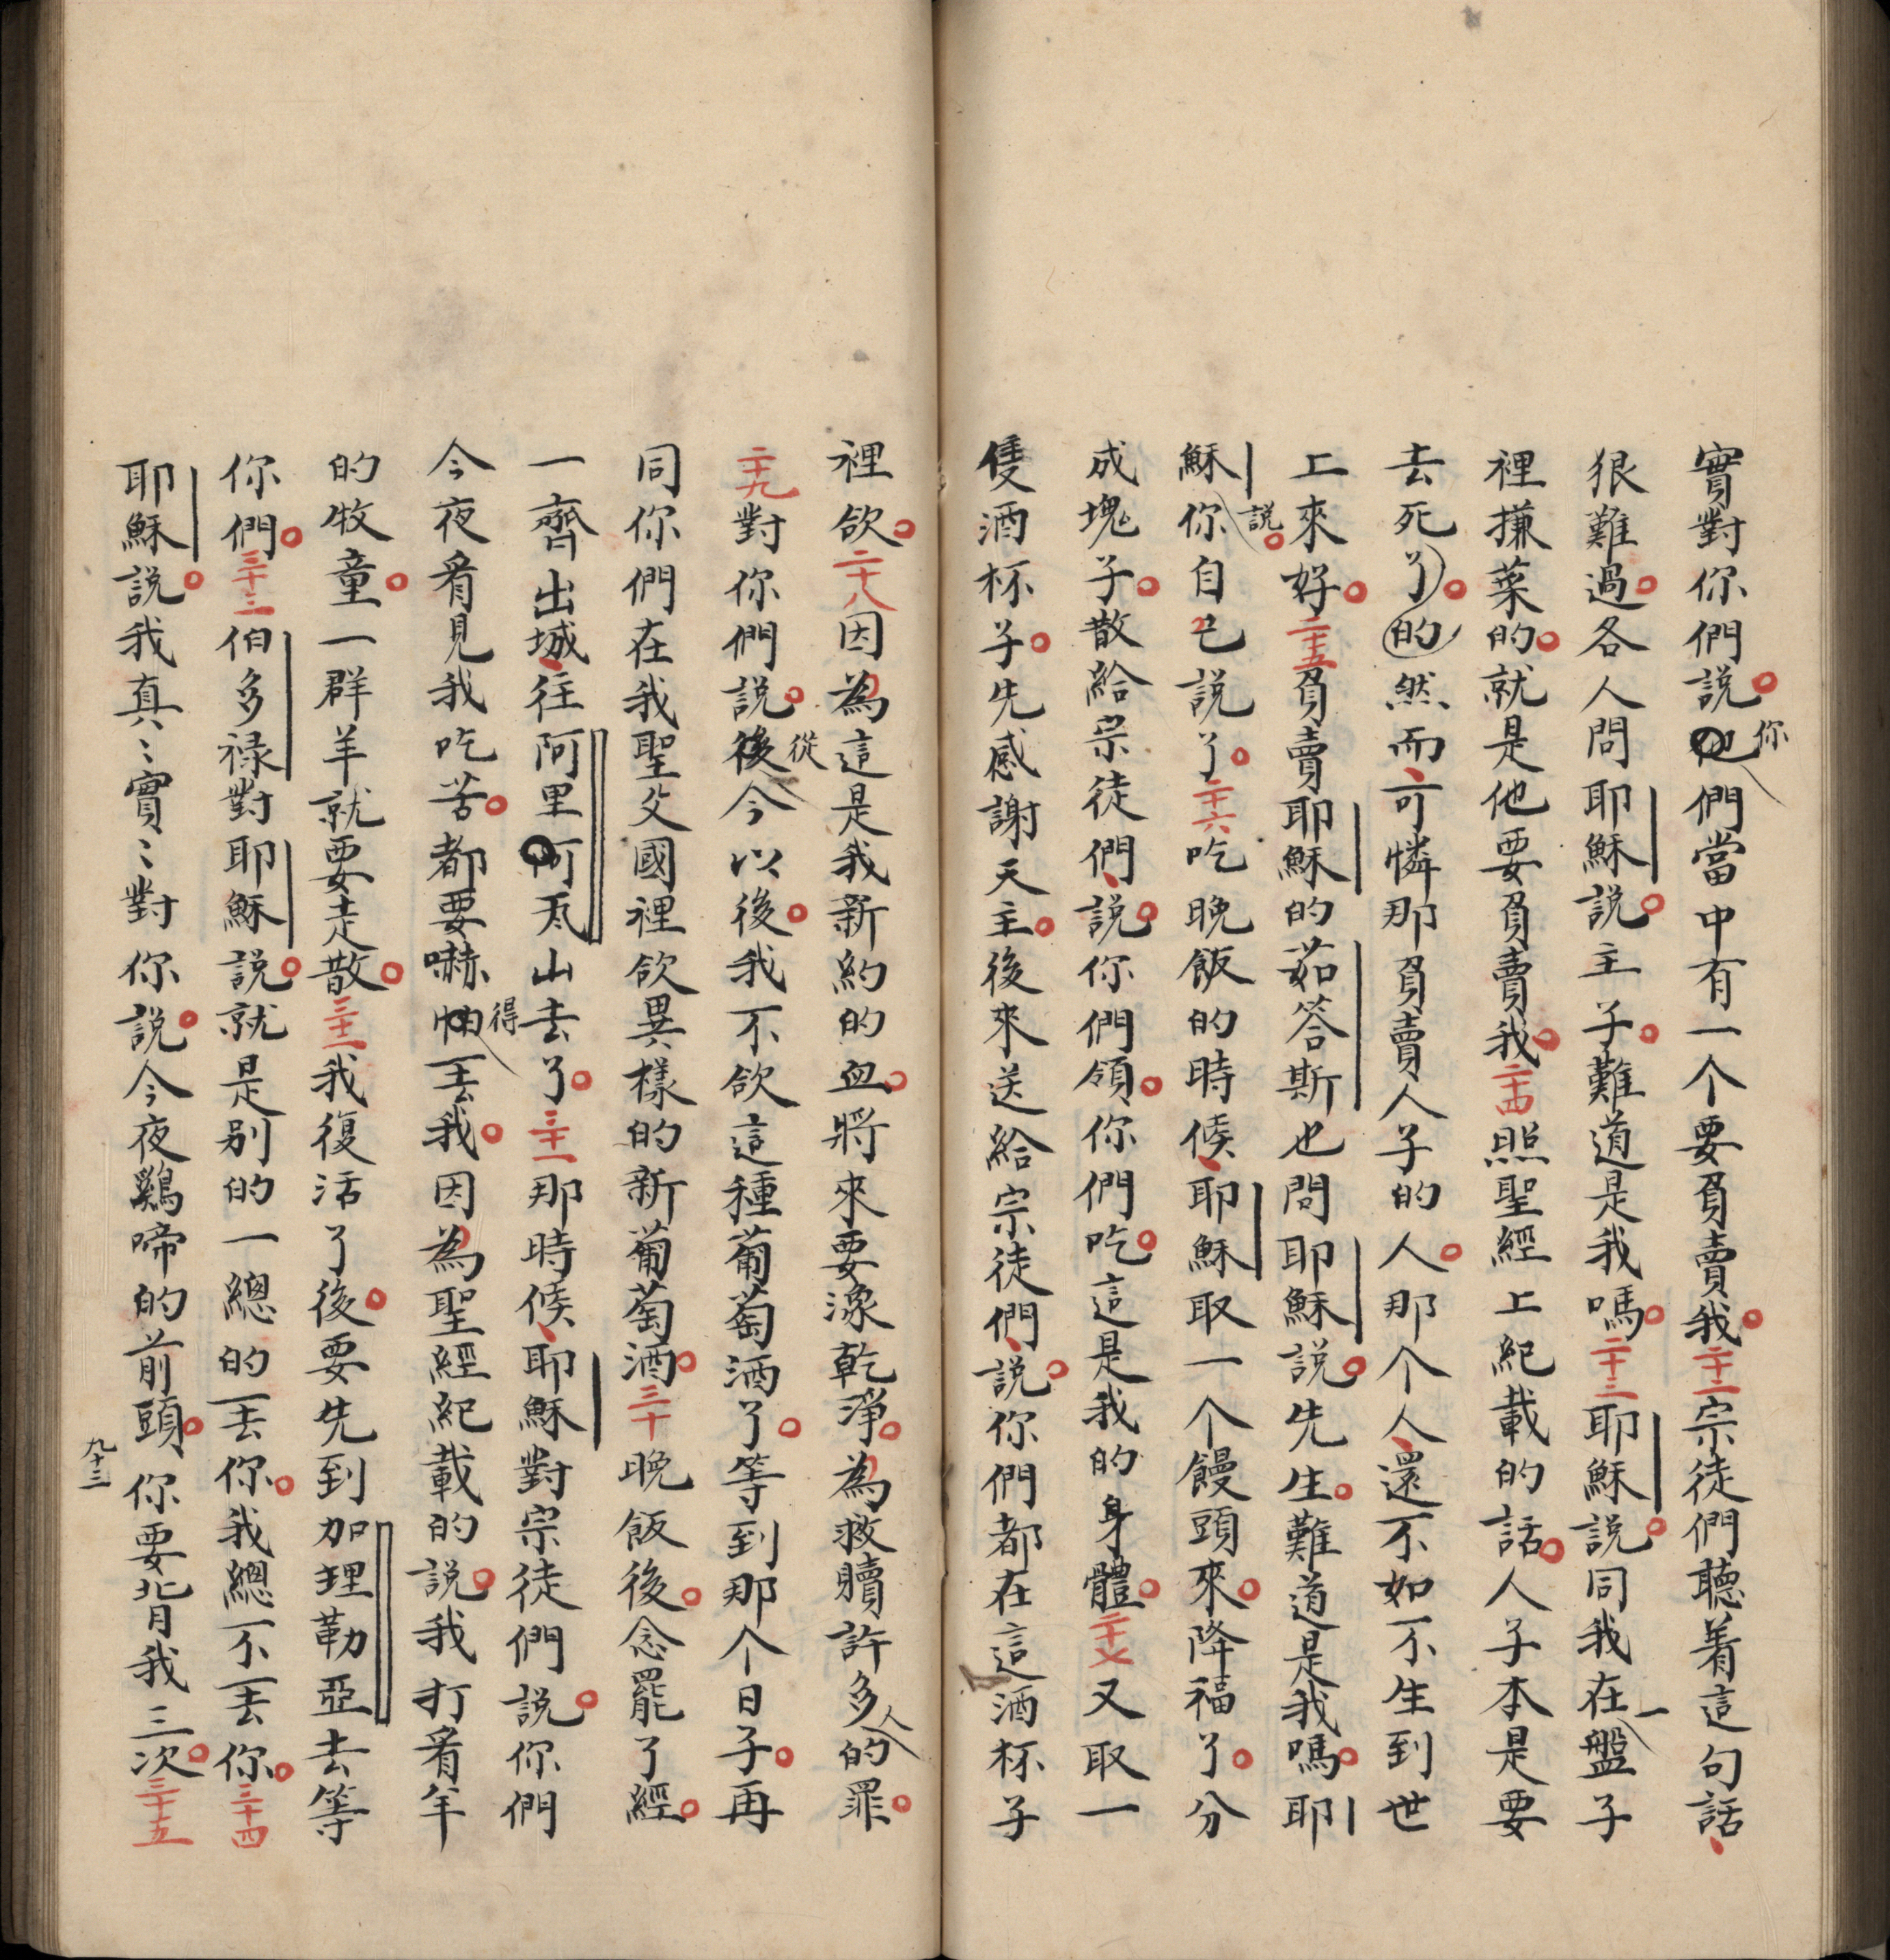 實對你們說你們當中有一个要負賣我二十二宗徒們聽着這句話
狠難過各人問耶穌說主子難道是我嗎二十三耶穌說同我在一盤子
裡搛菜的就是他要負賣我二十四照聖經上紀載的話人子本是要
去死了的然而可憐那負賣人子的人那个人還不如不生到世
上來好二十五負賣耶穌的茹答斯也問耶穌說先生難道是我嗎耶
穌說你自己說了二十六吃晚飯的時候耶穌取一个饅頭來降福了分
成塊子散給宗徒們說你們領你們吃這是我的身體二十七又取一
隻酒杯子先感謝天主後來送給宗徒們說你們都在這酒杯子
裡飲二十八因為這是我新約的血將來要潒乾淨為救贖許多人的罪
二十九對你們說從今以後我不飲這種葡萄酒了等到那个日子再
同你們在我聖父國裡飲異樣的新葡萄酒三十晚飯後念罷了經
一齊出城往阿里瓦山去了三十一那時候耶穌對宗徒們說你們
今夜看見我吃苦都要嚇得丟我因為聖經紀載的說我打看羊
的牧童一群羊就要走散三十二我復活了後要先到加理勒亞去等
你們三十三伯多祿對耶穌說就是別的一總的丟你我總不丟你三十四
耶穌說我真〻實〻對你說今夜鷄啼的前頭你要背我三次三十五
九十三